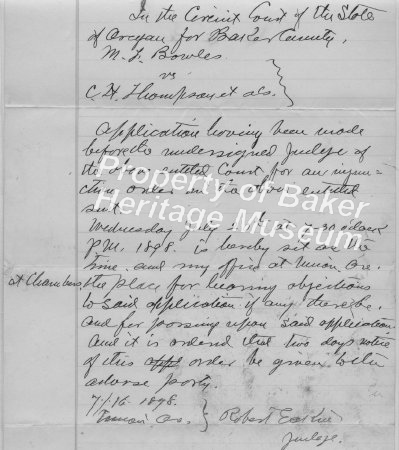 In the Circuit Court of the State
of Oregon for Baker County,
M. L. Bowles
vs
C. H. Thompson et als.
Application having been made
before the undersigned Judge of
the above entitled Court for an injun-
ction order in the above entitled
suit.
Wednesday July
P.M. 1898. is hereby set as the
time and my office at Union Ore.
at Chambers, the place for hearing objections
to said application if any there be.
and for passing upon said application
And it is ordered that two days notice
of this order be given to the
adverse party.
7/16-1898.
Union Ore. Robert Eakin
Judge.
Property of Baker
Heritage Museum